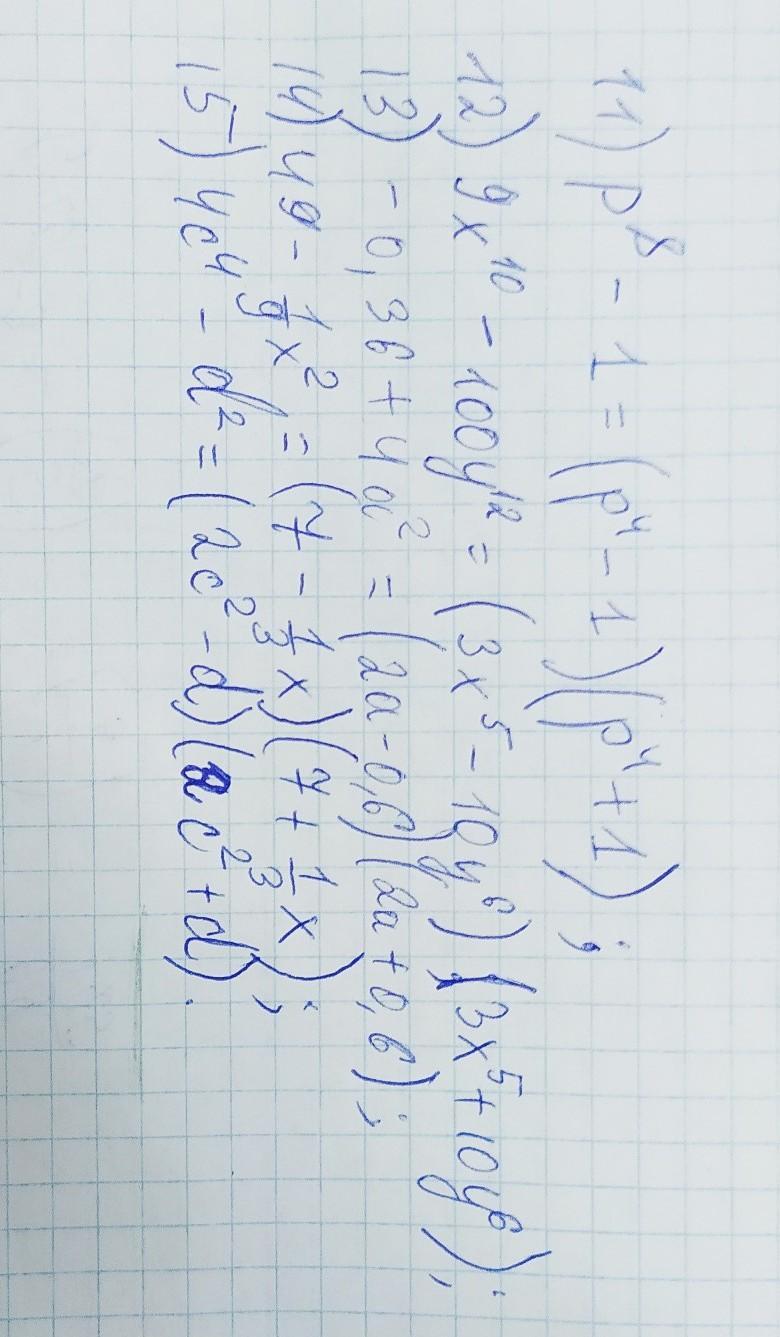 11) p⁸ - 1 = (p⁴ - 1)(p⁴ + 1);
12) 9x¹⁰ - 100y¹² = (3x⁵ - 10y⁶)(3x⁵ + 10y⁶);
13) - 0,36 + 4a² = (2a - 0,6)(2a + 0,6);
14) 49 - 1/9 x² = (7 - 1/3 x)(7 + 1/3 x);
15) 4c⁴ - d² = (2c² - d)(2c² + d).